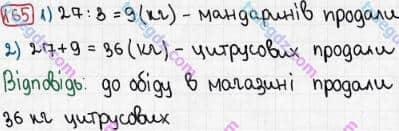 165 1) 27 : 3 = 9 (кг) - мандаринів продали
2) 27 + 9 = 36 (кг) - цитрусових продали
Відповідь: до обіду в магазині продали
36 кг цитрусових